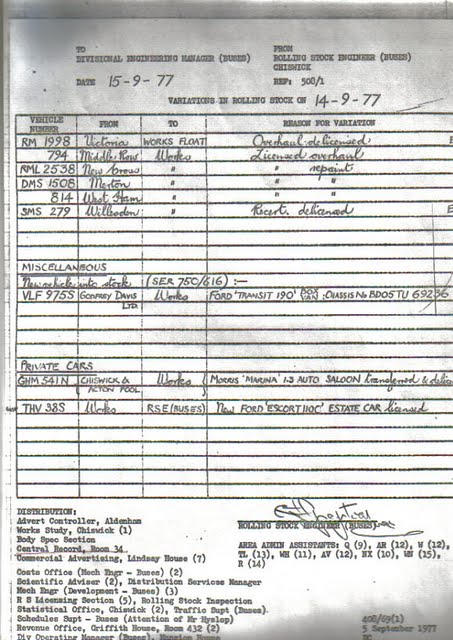 TO FROM
DIVISIONAL ENGINEERING MANAGER (BUSES) ROLLING STOCK ENGINEER (BUSES)
CHISWICK
DATE 15-9-77 REF: 508/1
VARIATIONS IN ROLLING STOCK ON 14-9-77
VEHICLE NUMBER FROM TO REASON FOR VARIATION
RM 1998 Victoria WORKS FLOAT Overhaul delicensed
794 Middle Row Works Licensed overhaul
RML 2538 New Cross " " repaint
DMS 1508 Merton " "
814 West Ham " "
SMS 279 Willesden " Recert. delicensed
MISCELLANEOUS
New vehicle into stock (SER 750/616) :—
VLF 975S GODFREY DAVIS LTD. Works FORD 'TRANSIT 190' BOX VAN : CHASSIS No BD05TU 69236
PRIVATE CARS
GHM 541N CHISWICK & ACTON POOL Works MORRIS 'MARINA' 1·3 AUTO SALOON transferred &
THV 38S Works RSE (BUSES) New FORD 'ESCORT 1100' ESTATE CAR licensed
DISTRIBUTION:
Advert Controller, Aldenham
Works Study, Chiswick (1)
Body Spec Section
Central Record, Room 34
Commercial Advertising, Lindsay House (7)
Costs Office (Mech Engr - Buses) (2)
Scientific Adviser (2), Distribution Services Manager
Mech Engr (Development - Buses) (3)
R S Licensing Section (5), Rolling Stock Inspection
Statistical Office, Chiswick (2), Traffic Supt (Buses).
Schedules Supt - Buses (Attention of Mr Hyslop)
Revenue Office, Griffith House, Room 432 (2)
Div Operating Manager (Buses), Mansion House
ROLLING STOCK ENGINEER (BUSES)
AREA ADMIN ASSISTANTS: Q (9), AR (12), W (12),
TL (13), WH (11), AV (12), HX (10), WN (15),
R (14)
408/69(1)
5 September 1977